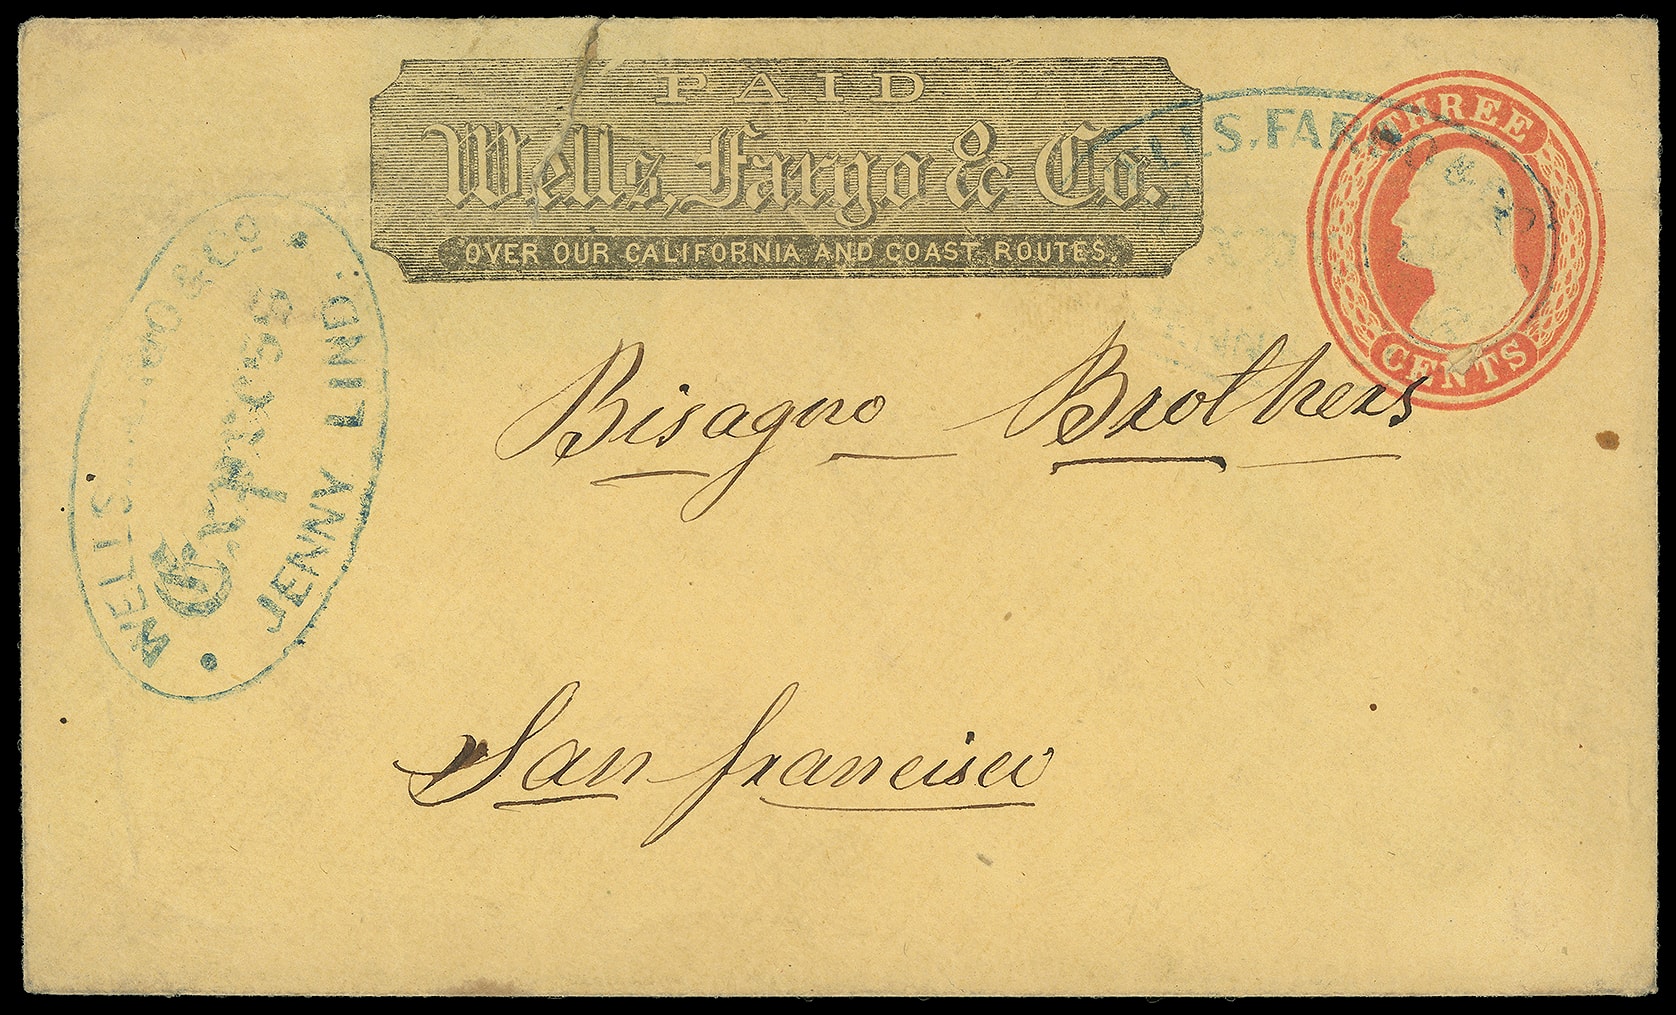 PAID
Wells, Fargo & Co.
OVER OUR CALIFORNIA AND COAST ROUTES.
THREE
CENTS
WELLS, FARGO & CO
WELLS FARGO & Co
Express
JENNY LIND.
Bisagno Brothers
San francisco